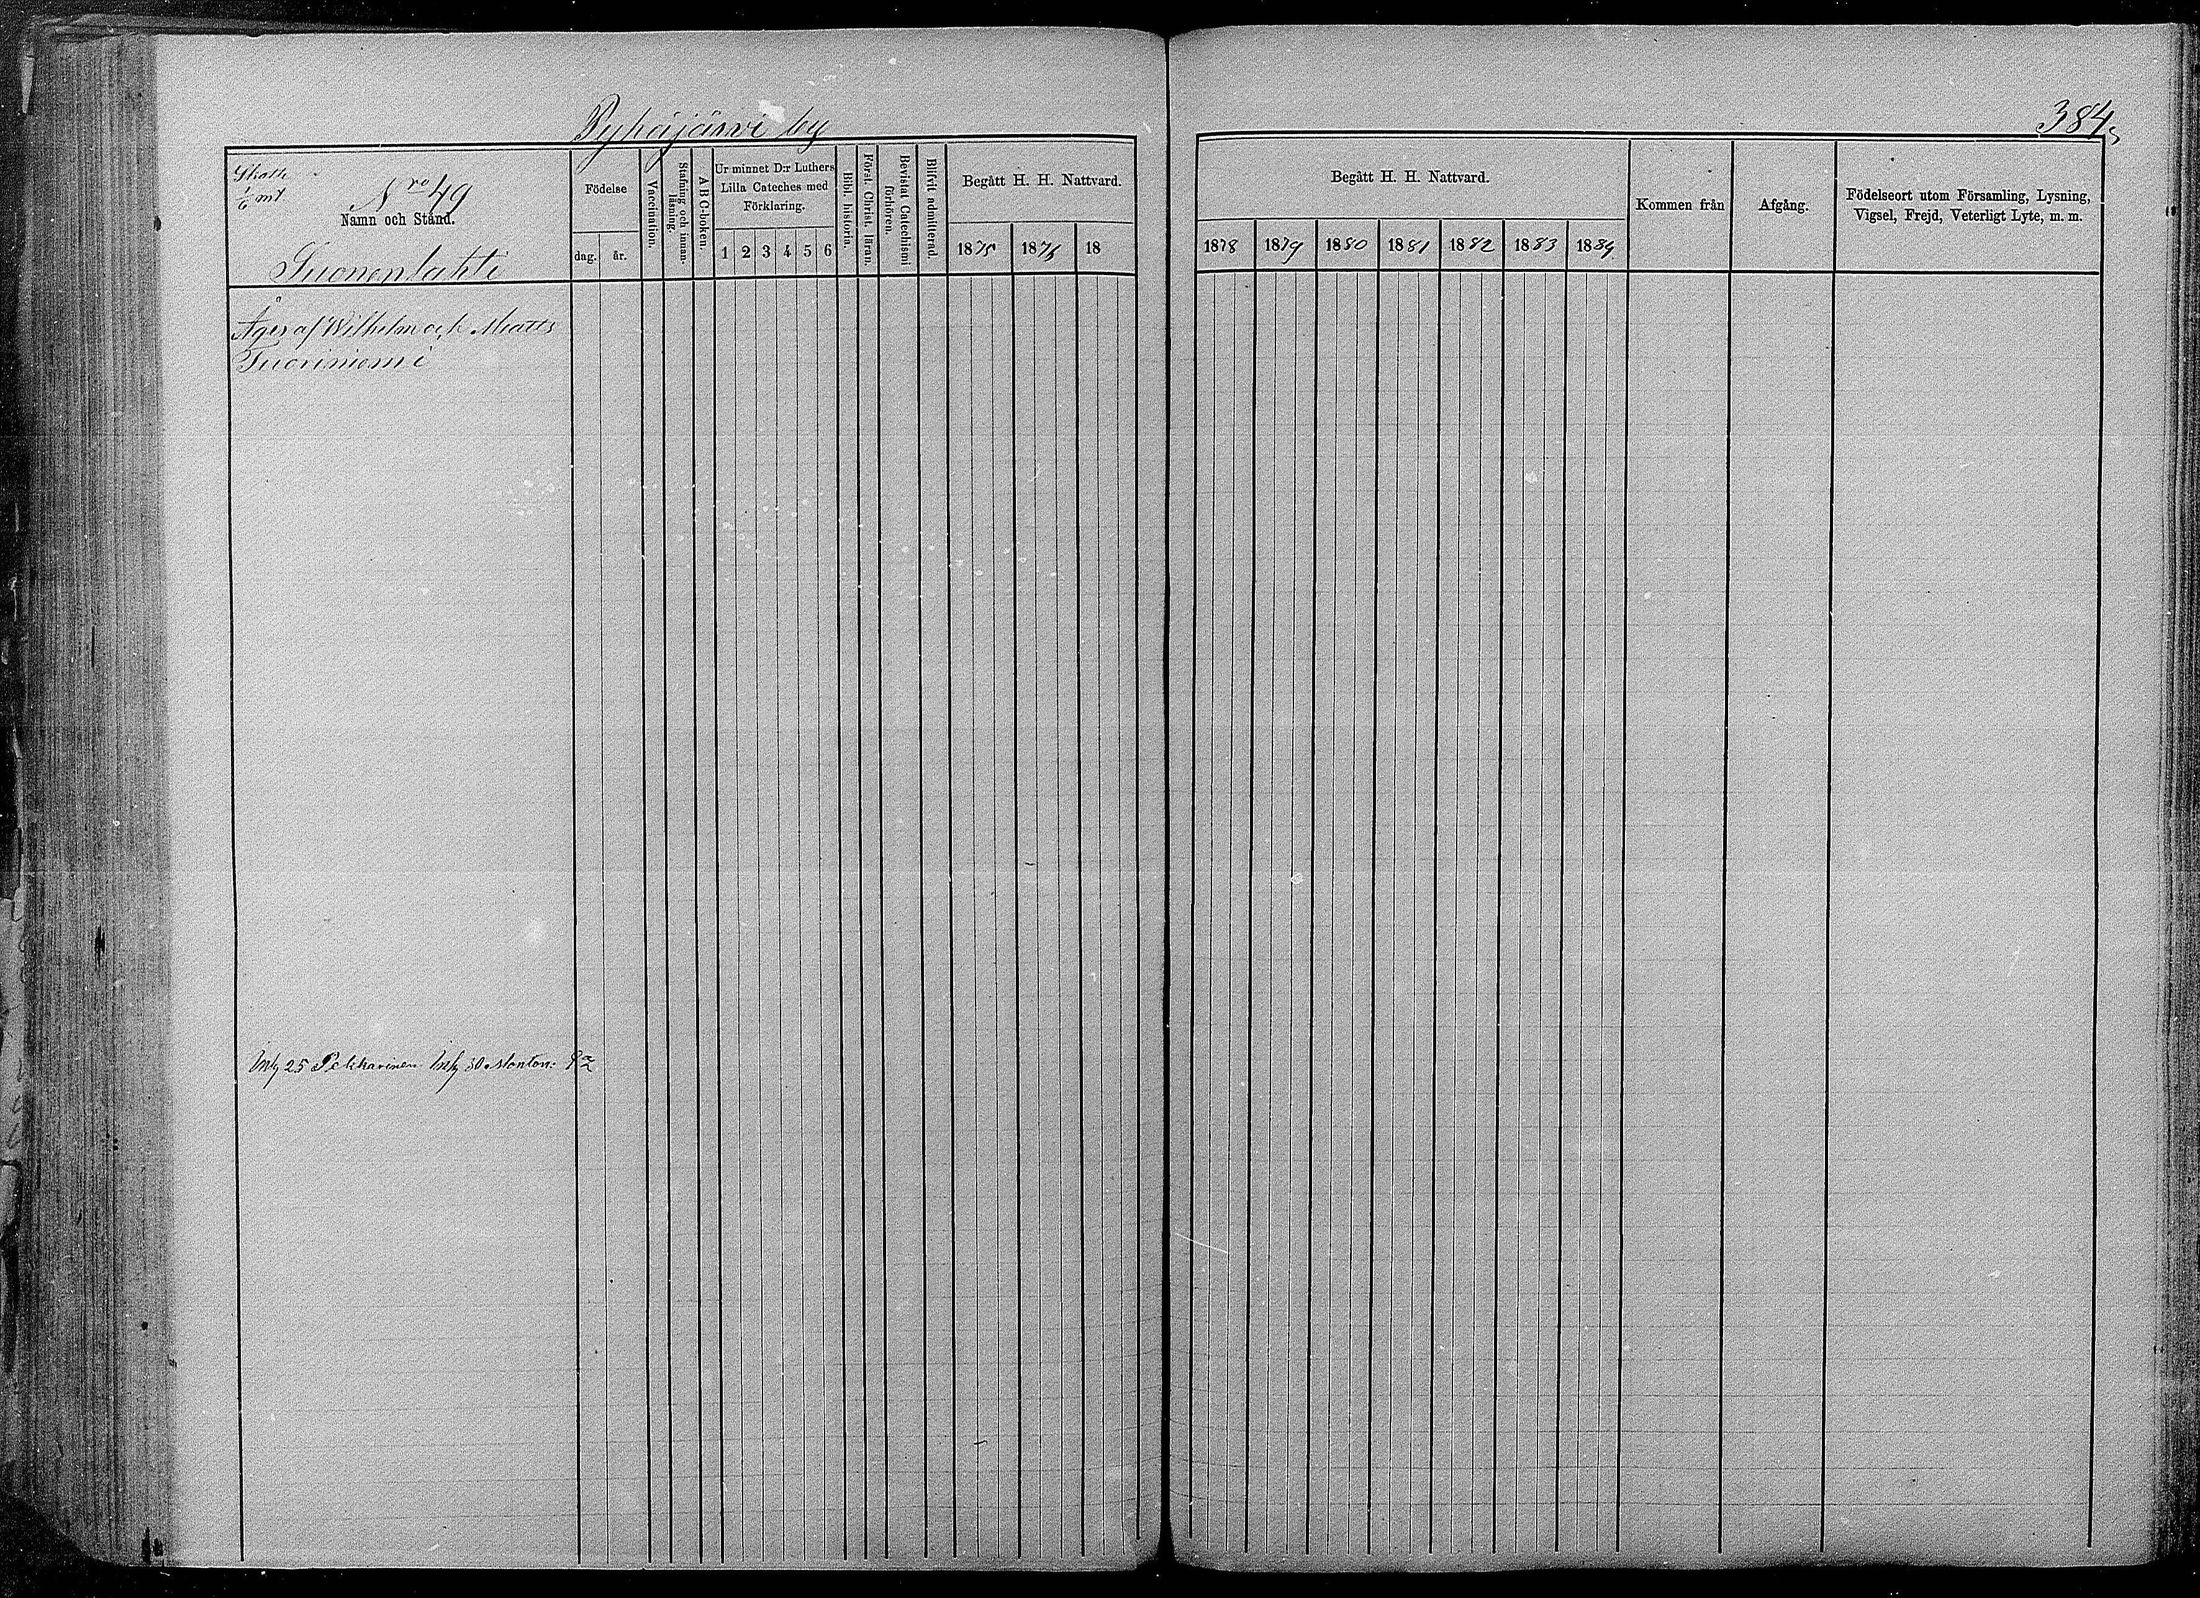 Pyhäjärvi by
384
Skatte
1/6 mt
Nro 49
Namn och Stånd.
Suonenlahti
Födelse
dag.
år.
Vaccination.
Stafning och innan-
läsning.
A B C-boken.
Ur minnet D:r Luthers
Lilla Cateches med
Förklaring.
1 2 3 4 5 6
Bibl. historia.
Först. Christ. läran.
Bevistat Catechismi
förhören.
Blifvit admitterad.
Begått H. H. Nattvard.
1875 1876 18
Begått H. H. Nattvard.
1878 1879 1880 1881 1882 1883 1884
Kommen från
Afgång.
Födelseort utom Församling, Lysning,
Vigsel, Frejd, Veterligt Lyte, m. m.
Äges af Wilhelm och Matts
Tuoriniemi
25 Pekkarinen 30